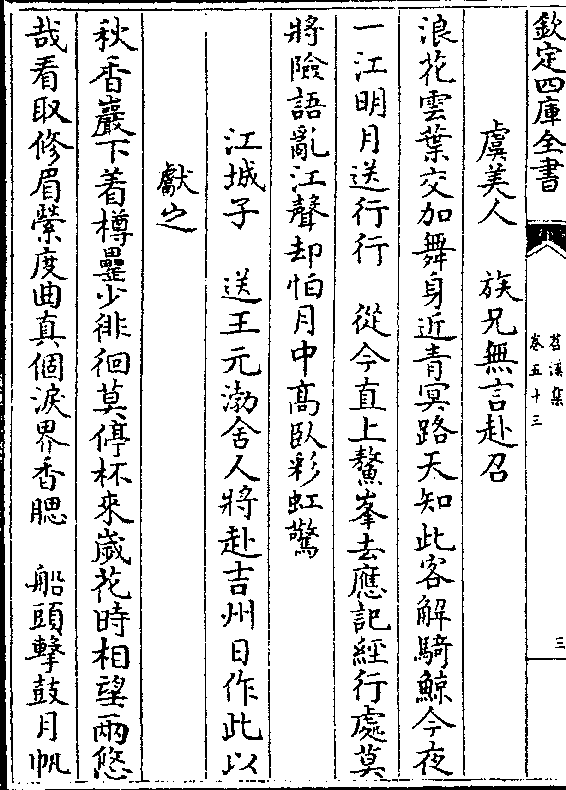 欽定四庫全書
苕溪集
卷五十三
三
虞美人 族兄無言赴召
浪花雲葉交加舞身近青冥路天知此客解騎鯨今夜
一江明月送行行 從今直上鰲峯去應記經行處莫
將險語亂江聲却怕月中高臥彩虹驚
江城子 送王元渤舍人將赴吉州日作此以
獻之
秋香巖下着樽罍少徘徊莫停杯來歲花時相望兩悠
哉看取修眉縈度曲真個淚界香腮 船頭擊鼓月帆